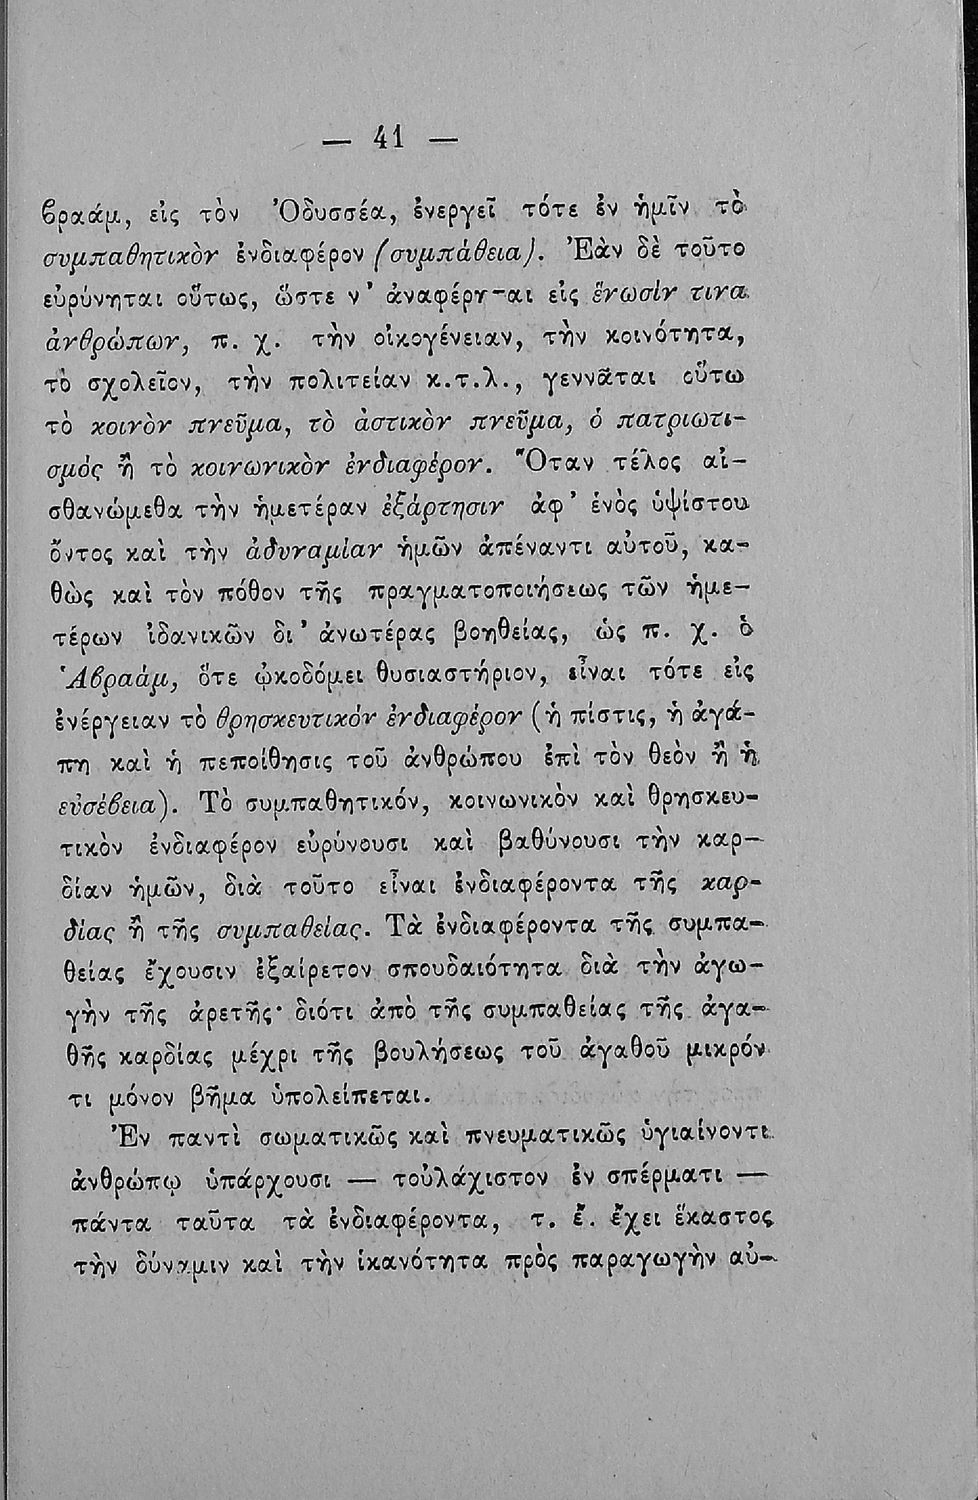 — 41 —
βραάμ, εἰς τὸν Ὀδυσσέα, ἐνεργεῖ τότε ἐν ἡμῖν τὸ
συμπαθητικὸν ἐνδιαφέρον (συμπάθεια). Ἐὰν δὲ τοῦτο
εὐρύνηται οὕτως, ὥστε ν’ ἀναφέρηται εἰς ἕνωσίν τινα
ἀνθρώπων, π. χ. τὴν οἰκογένειαν, τὴν κοινότητα,
τὸ σχολεῖον, τὴν πολιτείαν κ.τ.λ., γεννᾶται οὕτω
τὸ κοινὸν πνεῦμα, τὸ ἀστικὸν πνεῦμα, ὁ πατριωτι-
σμός ἢ τὸ κοινωνικὸν ἐνδιαφέρον. Ὅταν τέλος αἰ-
σθανώμεθα τὴν ἡμετέραν ἐξάρτησιν ἀφ’ ἑνὸς ὑψίστου
ὄντος καὶ τὴν ἀδυναμίαν ἡμῶν ἀπέναντι αὐτοῦ, κα-
θὼς καὶ τὸν πόθον τῆς πραγματοποιήσεως τῶν ἡμε-
τέρων ἰδανικῶν δι’ ἀνωτέρας βοηθείας, ὡς π. χ. ὁ
Ἁβραάμ, ὅτε ᾠκοδόμει θυσιαστήριον, εἶναι τότε εἰς
ἐνέργειαν τὸ θρησκευτικόν ἐνδιαφέρον (ἡ πίστις, ἡ ἀγά-
πη καὶ ἡ πεποίθησις τοῦ ἀνθρώπου ἐπὶ τὸν θεὸν ἢ ἡ
εὐσέβεια). Τὸ συμπαθητικόν, κοινωνικὸν καὶ θρησκευ-
τικὸν ἐνδιαφέρον εὐρύνουσι καὶ βαθύνουσι τὴν καρ-
δίαν ἡμῶν, διὰ τοῦτο εἶναι ἐνδιαφέροντα τῆς καρ-
δίας ἢ τῆς συμπαθείας. Τὰ ἐνδιαφέροντα τῆς συμπα-
θείας ἔχουσιν ἐξαίρετον σπουδαιότητα διὰ τὴν ἀγω-
γὴν τῆς ἀρετῆς· διότι ἀπὸ τῆς συμπαθείας τῆς ἀγα-
θῆς καρδίας μέχρι τῆς βουλήσεως τοῦ ἀγαθοῦ μικρόν
τι μόνον βῆμα ὑπολείπεται.
Ἐν παντὶ σωματικῶς καὶ πνευματικῶς ὑγιαίνοντι
ἀνθρώπῳ ὑπάρχουσι — τοὐλάχιστον ἐν σπέρματι —
πάντα ταῦτα τὰ ἐνδιαφέροντα, τ. ἔ. ἔχει ἕκαστος
τὴν δύναμιν καὶ τὴν ἱκανότητα πρὸς παραγωγὴν αὐ-